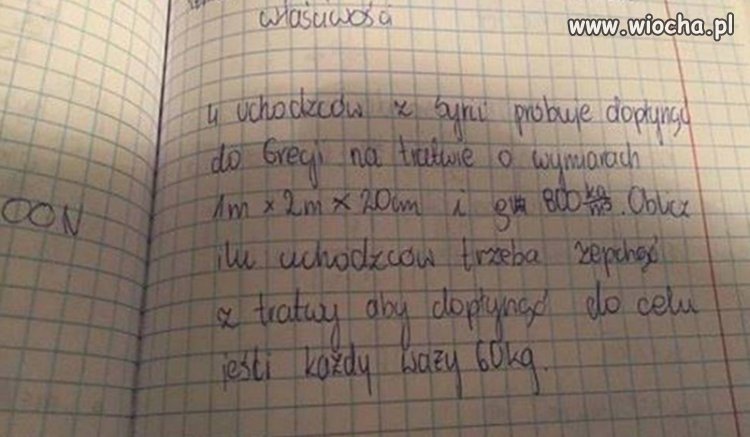 www.wiocha.pl
właściwości
4 uchodźców z Syrii próbuje dopłynąć
do Grecji na tratwie o wymiarach
1m x 2m x 20cm i 800 kg/m³. Oblicz
ilu uchodźców trzeba zepchnąć
z tratwy aby dopłynąć do celu
jeśli każdy waży 60kg.
OON